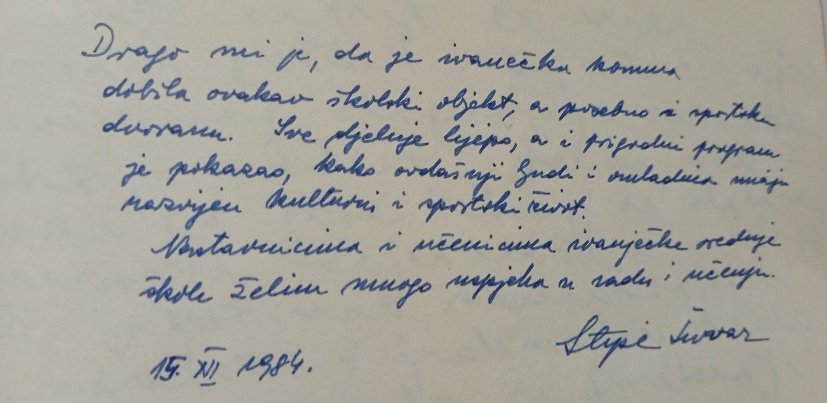 Drago mi je, da je ivanečka komuna
dobila ovakav školski objekt, a posebno i sportsku
dvoranu. Sve djeluje lijepo, a i prigodni program
je pokazao, kako ovdašnji ljudi i omladina imaju
razvijen kulturni i sportski život.
Nastavnicima i učenicima ivanječke srednje
škole želim mnogo uspjeha u radu i učenju.
Stipe Šuvar
15. XI 1984.